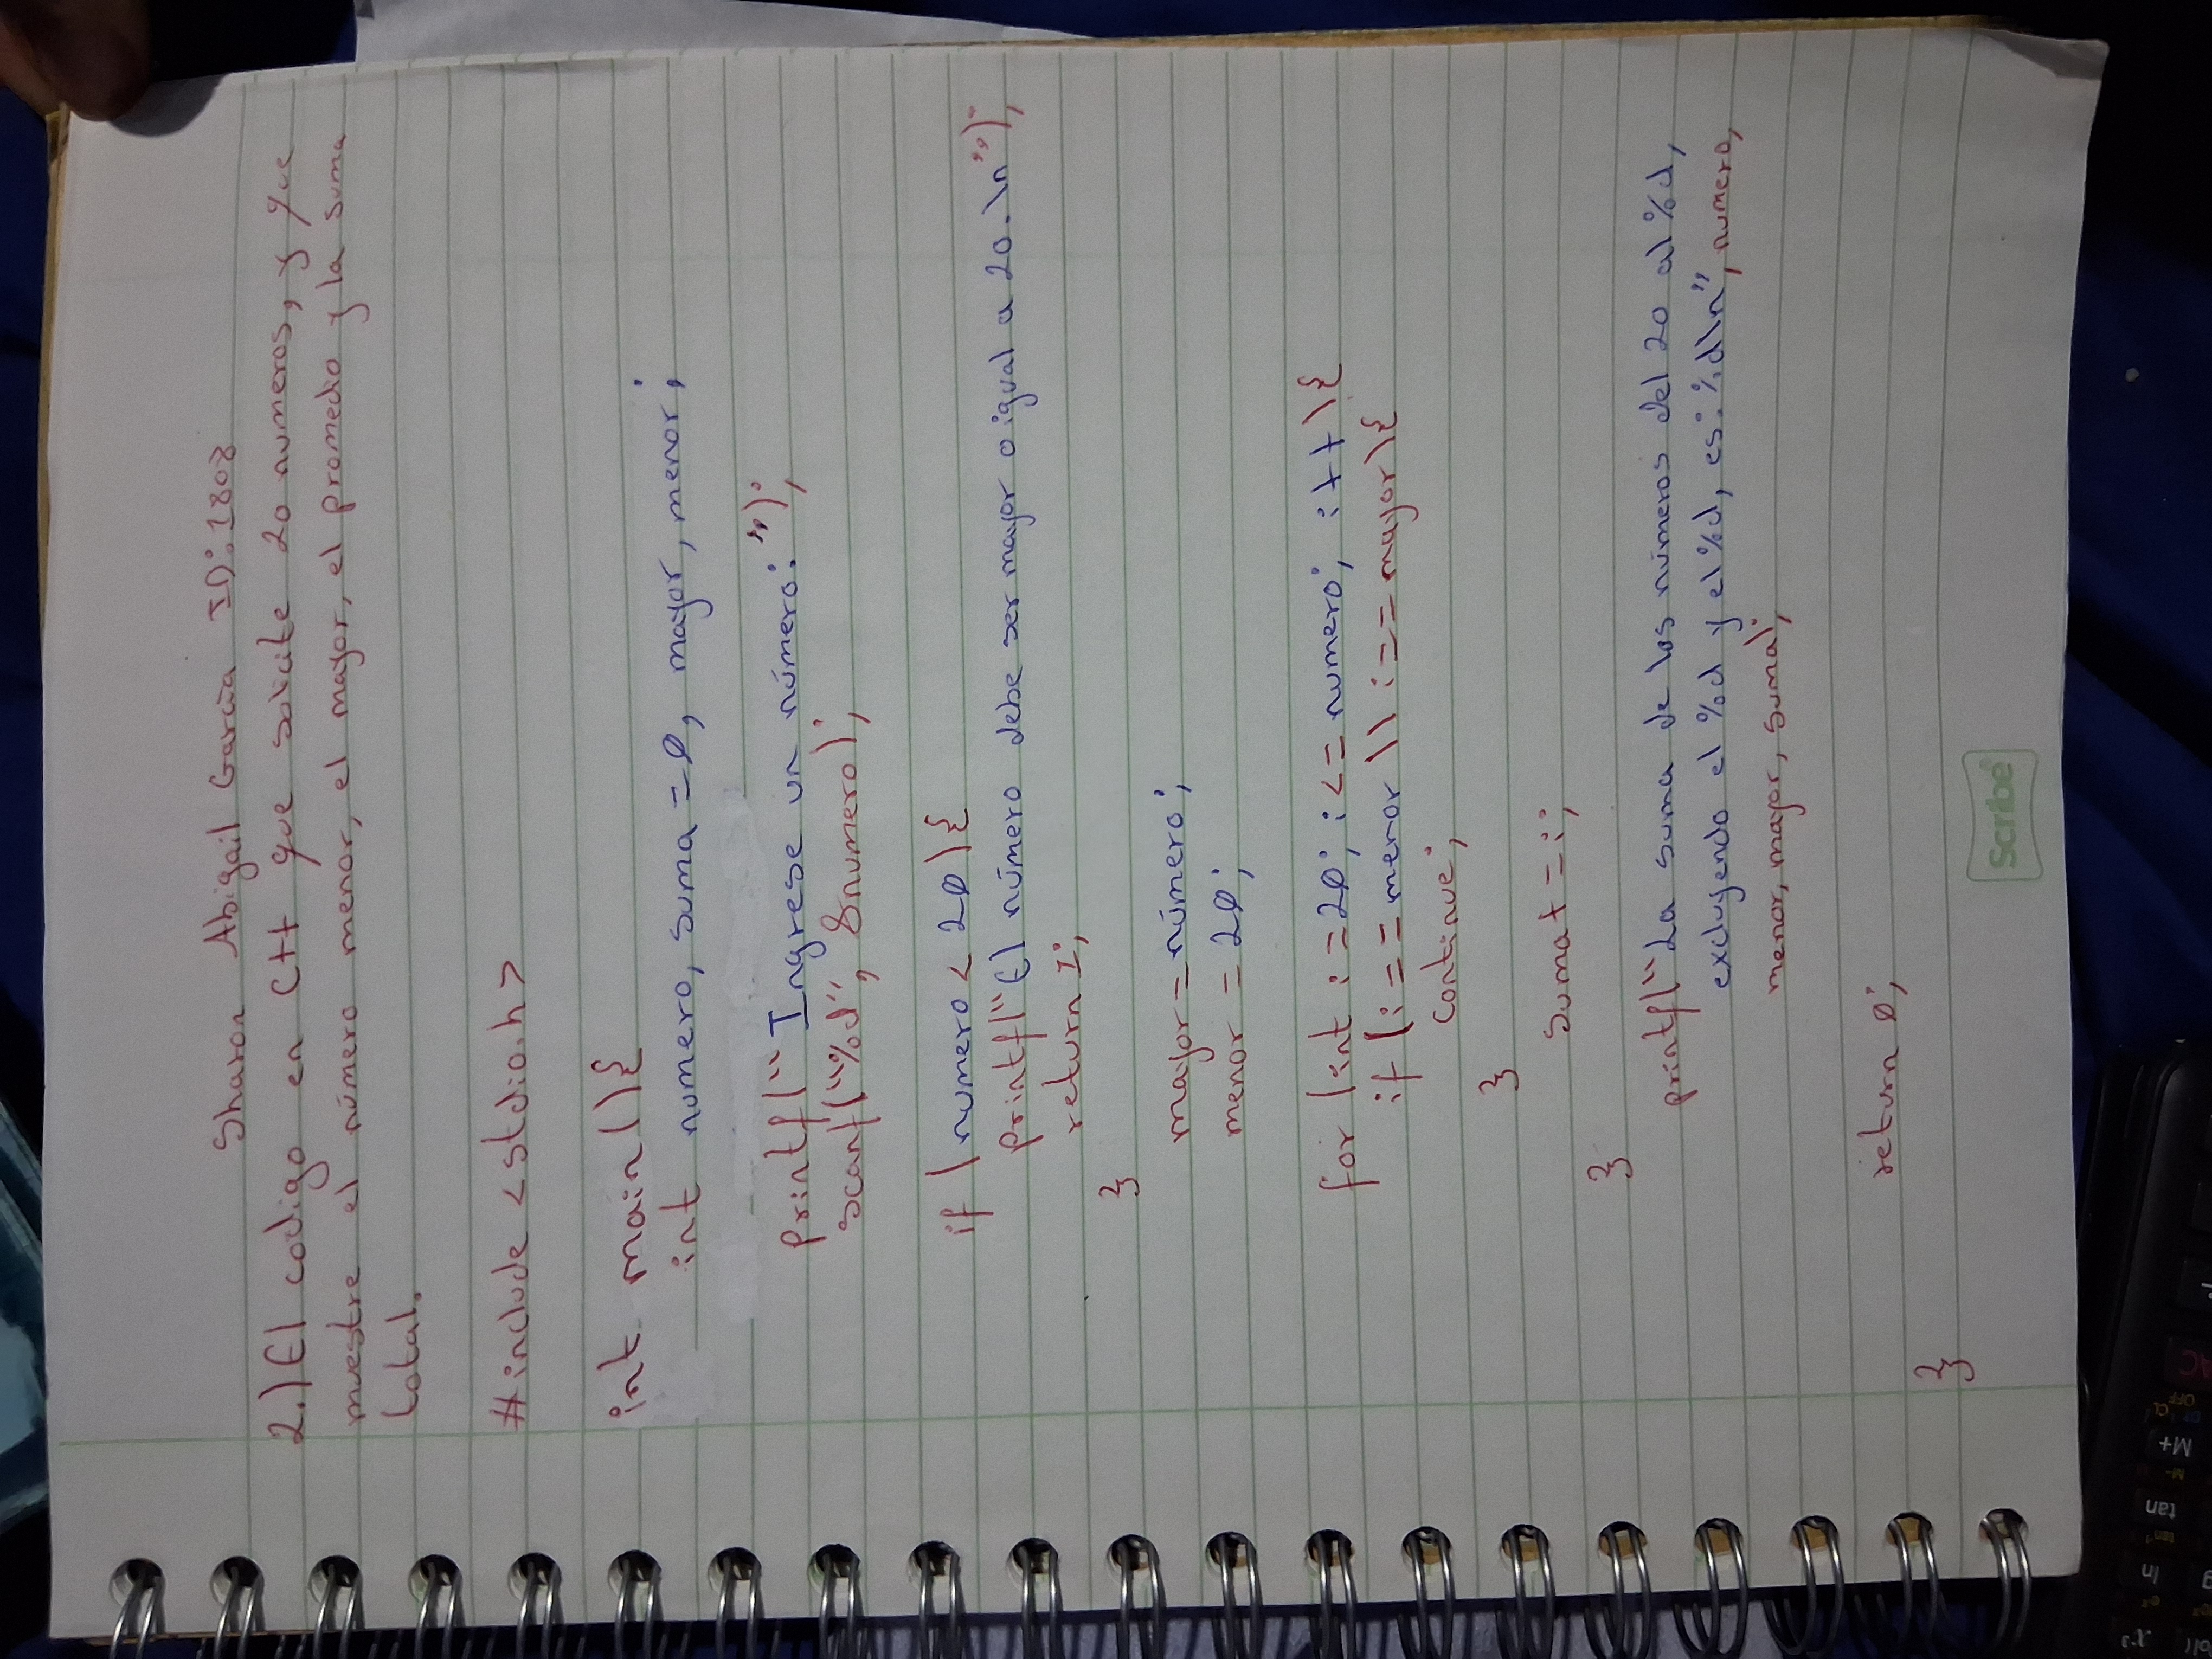 Sharon Abigail García ID: 1808
2.) El codigo en C++ que solicite 20 numeros, y que
muestre el número menor, el mayor, el promedio y la suma
total.
#include <stdio.h>
int main(){
int numero, suma = 0, mayor, menor;
printf("Ingrese un número: ");
scanf("%d", &numero);
if (numero < 20){
printf("El número debe ser mayor o igual a 20.\n");
return 1;
}
mayor = número;
menor = 20;
for (int i = 20; i <= numero; i++){
if (i == menor || i == mayor){
continue;
}
suma += i;
}
printf("La suma de los números del 20 al %d,
excluyendo el %d y el %d, es: %d\n", numero,
menor, mayor, suma);
return 0;
}
Scribe®
AC
OFF
CL
M+
M-
tan
tan⁻¹
ln
eˣ
x³